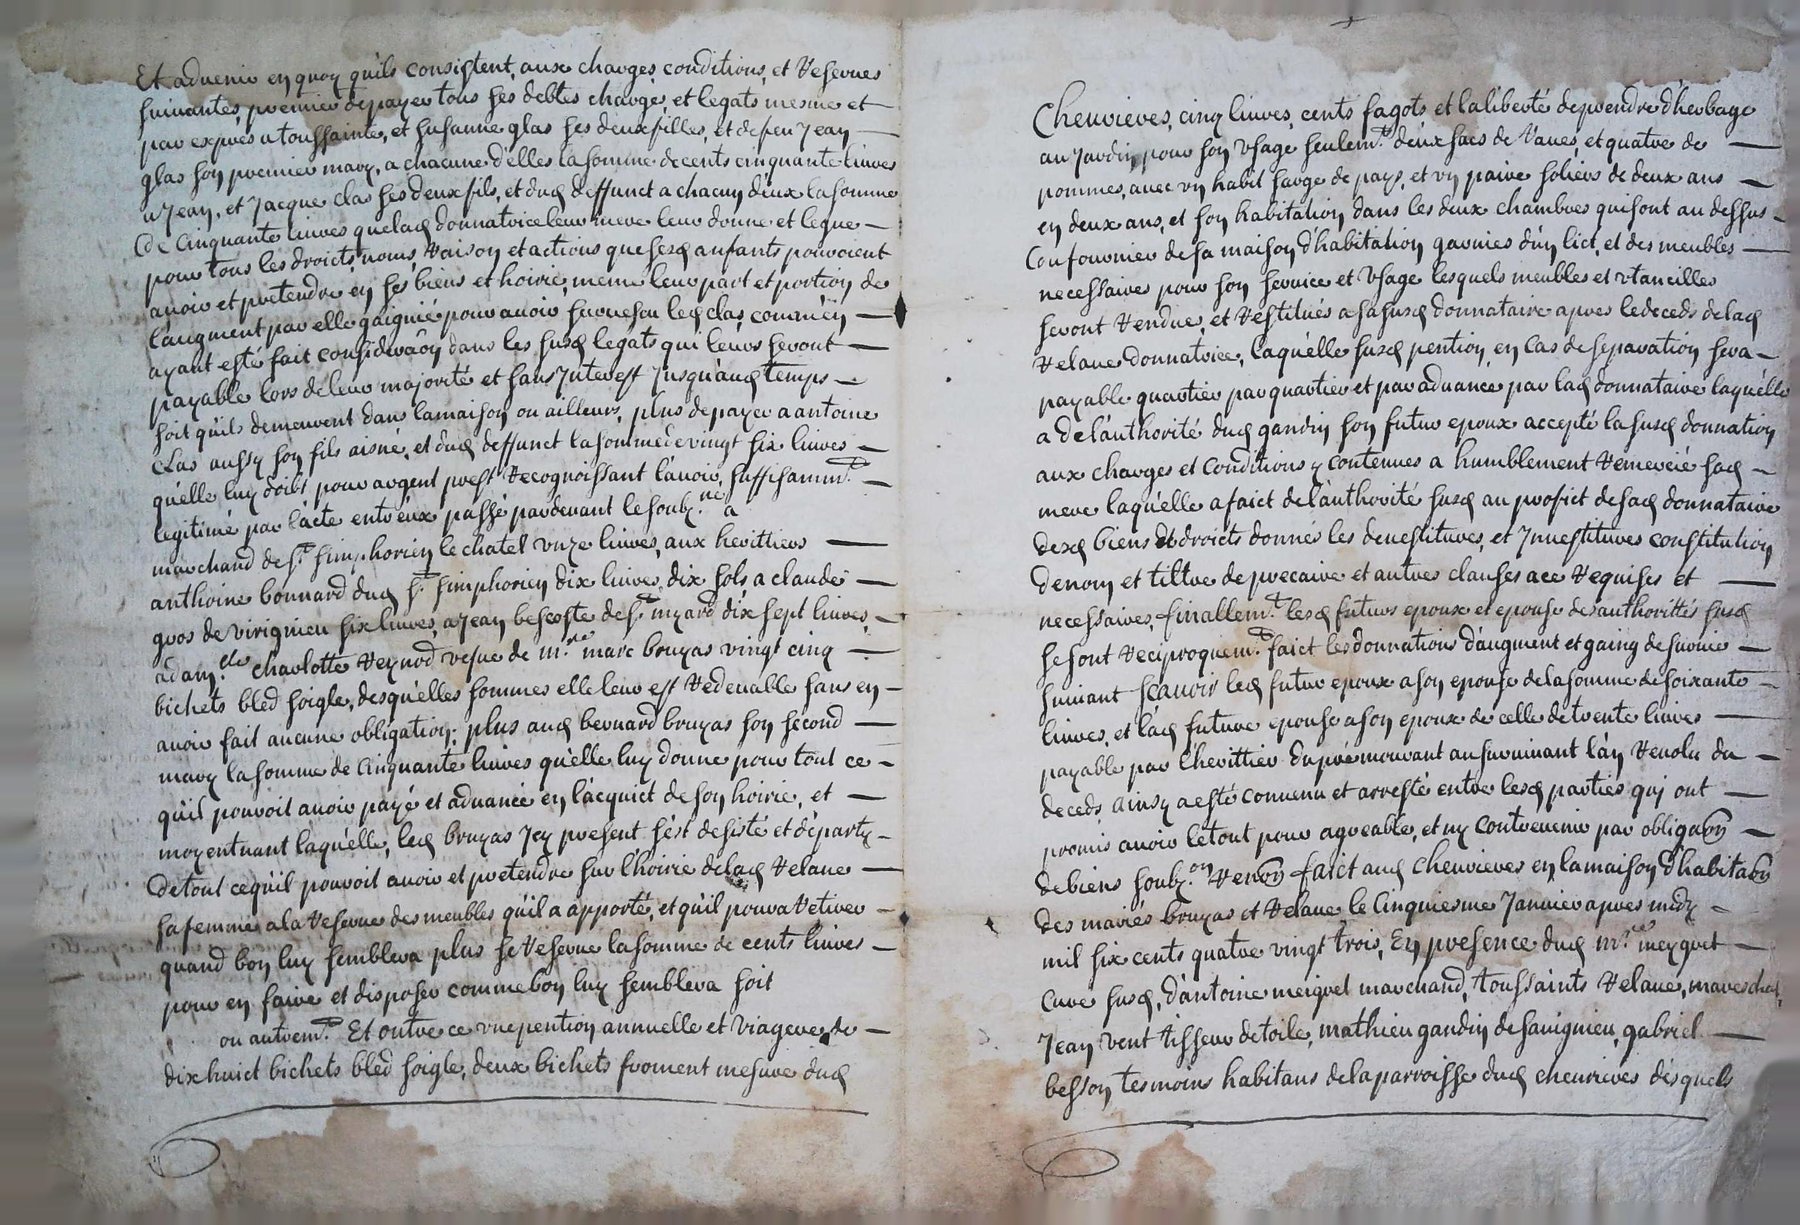 Et advenir en quoy qu'ils consistent, aux charges, conditions, et Reserves
suivantes, premier de payer tous ses debtes charges, et legats mesme et
par expres a toussainte, et susanne glas ses deux filles, et de feu Jean
glas son premier mary, a chacune d'elles la somme de cents cinquante livres
a Jean, et Jacque clas ses deux fils, et dud deffunct a chacun d'eux la somme
de cinquante livres que lad donnatrice leur mere leur donne et legue
pour tous les droicts, noms, Raison et actions que sesd anfants pouvoient
avoir et pretendre en ses biens et hoirie, meme leur part et portion de
l'augment par elle gaignié pour avoir survescu led clas, comm'en
ayant esté fait consideraon dans les susd legats qui leurs seront
payable lors de leur majorité et sans Interest Jusqu'aud temps
soit qu'ils demeurent dans la maison ou ailleurs, plus de payer a antoine
clas aussy son fils aisné, et dud deffunct la somme de vingt six livres
qu'elle luy doibt pour argent prest Recognoissant l'avoir, suffisamm.t
legitimé par l'acte entr'eux passé pardevant le soubz.né a
marchand de s.t simphorien le chatel unze livres, aux herittiers
anthoine bonnard dud s.t simphorien dix livres, dix sols a claude
gros de virignieu six livres, a Jean bescoste de s.t myard dix sept livres,
a dam.elle charlotte Reynod vefue de m.re marc bruyas vingt cinq
bichets bled soigle, desquelles sommes elle leur est Redevable sans en
avoir fait aucune obligation; plus aud bernard bruyas son second
mary la somme de cinquante livres qu'elle luy donne pour tout ce
qu'il pouvoit avoir payé et advancé en l'acquict de son hoirie, et
moyentnant laquelle, led bruyas Icy present s'est desisté et départy
de tout ce qu'il pouvoit avoir et pretendre sur l'hoirie de lad Relave
sa femme a la Reserve des meubles qu'il a apporté, et qu'il pourra Retirer
quand bon luy semblera plus se Reserve la somme de cents livres
pour en faire et disposer comme bon luy semblera soit
ou autrem.t Et outre ce une pention annuelle et viagere de
dix huict bichets bled soigle, deux bichets froment mesure dud
Chevrieres, cinq livres, cents fagots et la liberté de prendre d'herbage
au Jardin pour son Usage seulem.t deux sacs de Raves, et quatre de
pommes, avec un habit sarge de pays, et un paire soliers de deux ans
en deux ans, et son habitation dans les deux chambres qui sont au dessus
du fournier de sa maison d'habitation garnies d'un lict, et des meubles
necessaires pour son service et Usage lesquels meubles et Utancilles
seront Rendue, et Restitués a sa susd donnataire apres le deceds de lad
Relave donnatrice, laquelle susd pention en cas de separation sera
payable quartier par quartier et par advance par lad donnataire laquelle
a de l'authorité dud gandin son futur epoux accepté la susd donnation
aux charges et conditions y contenues a humblement Remercié sad
mere laquelle a faict de l'authorité susd au profict de sad donnataire
desd biens et droicts donnés les devestitures, et Investitures constitution
de nom et tiltre de precaire et autres clauses a ce Requises et
necessaires, finallem.t lesd futurs epoux et epouse des authorittés susd
se sont Reciproquem.t faict les donnations d'augment et gaing de survie
suivant scavoir led futur epoux a son epouse de la somme de soixante
livres, et lad future epouse a son epoux de celle de trente livres
payable par l'herittier du premourant au survivant l'an Revolu du
deceds, ainsy a esté convenu et arresté entre lesd parties qui ont
promis avoir le tout pour agreable, et ny contrevenir par obligaon
de biens soubz.on Renon faict aud chevrieres en la maison d'habitaon
des mariés bruyas et Relave le cinquiesme Janvier apres midy
mil six cents quatre vingt trois, En presence dud m.re meyguet
cure susd, d'antoine meiguet marchand, toussaints Relave, mareschal,
Jean vent tisseur de toile, mathieu gandin de savignieu, gabriel
besson tesmoins habitans de la parroisse dud chevrieres desquels